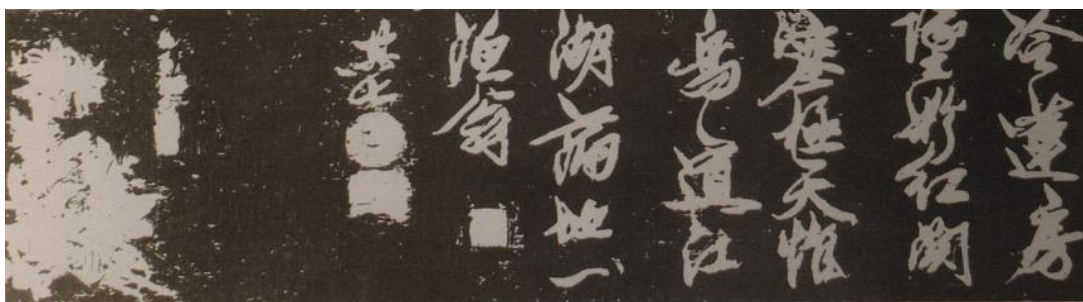 冷蓮房
墜粉紅關
塞極天惟
鳥道江
湖滿地一
漁翁
其七